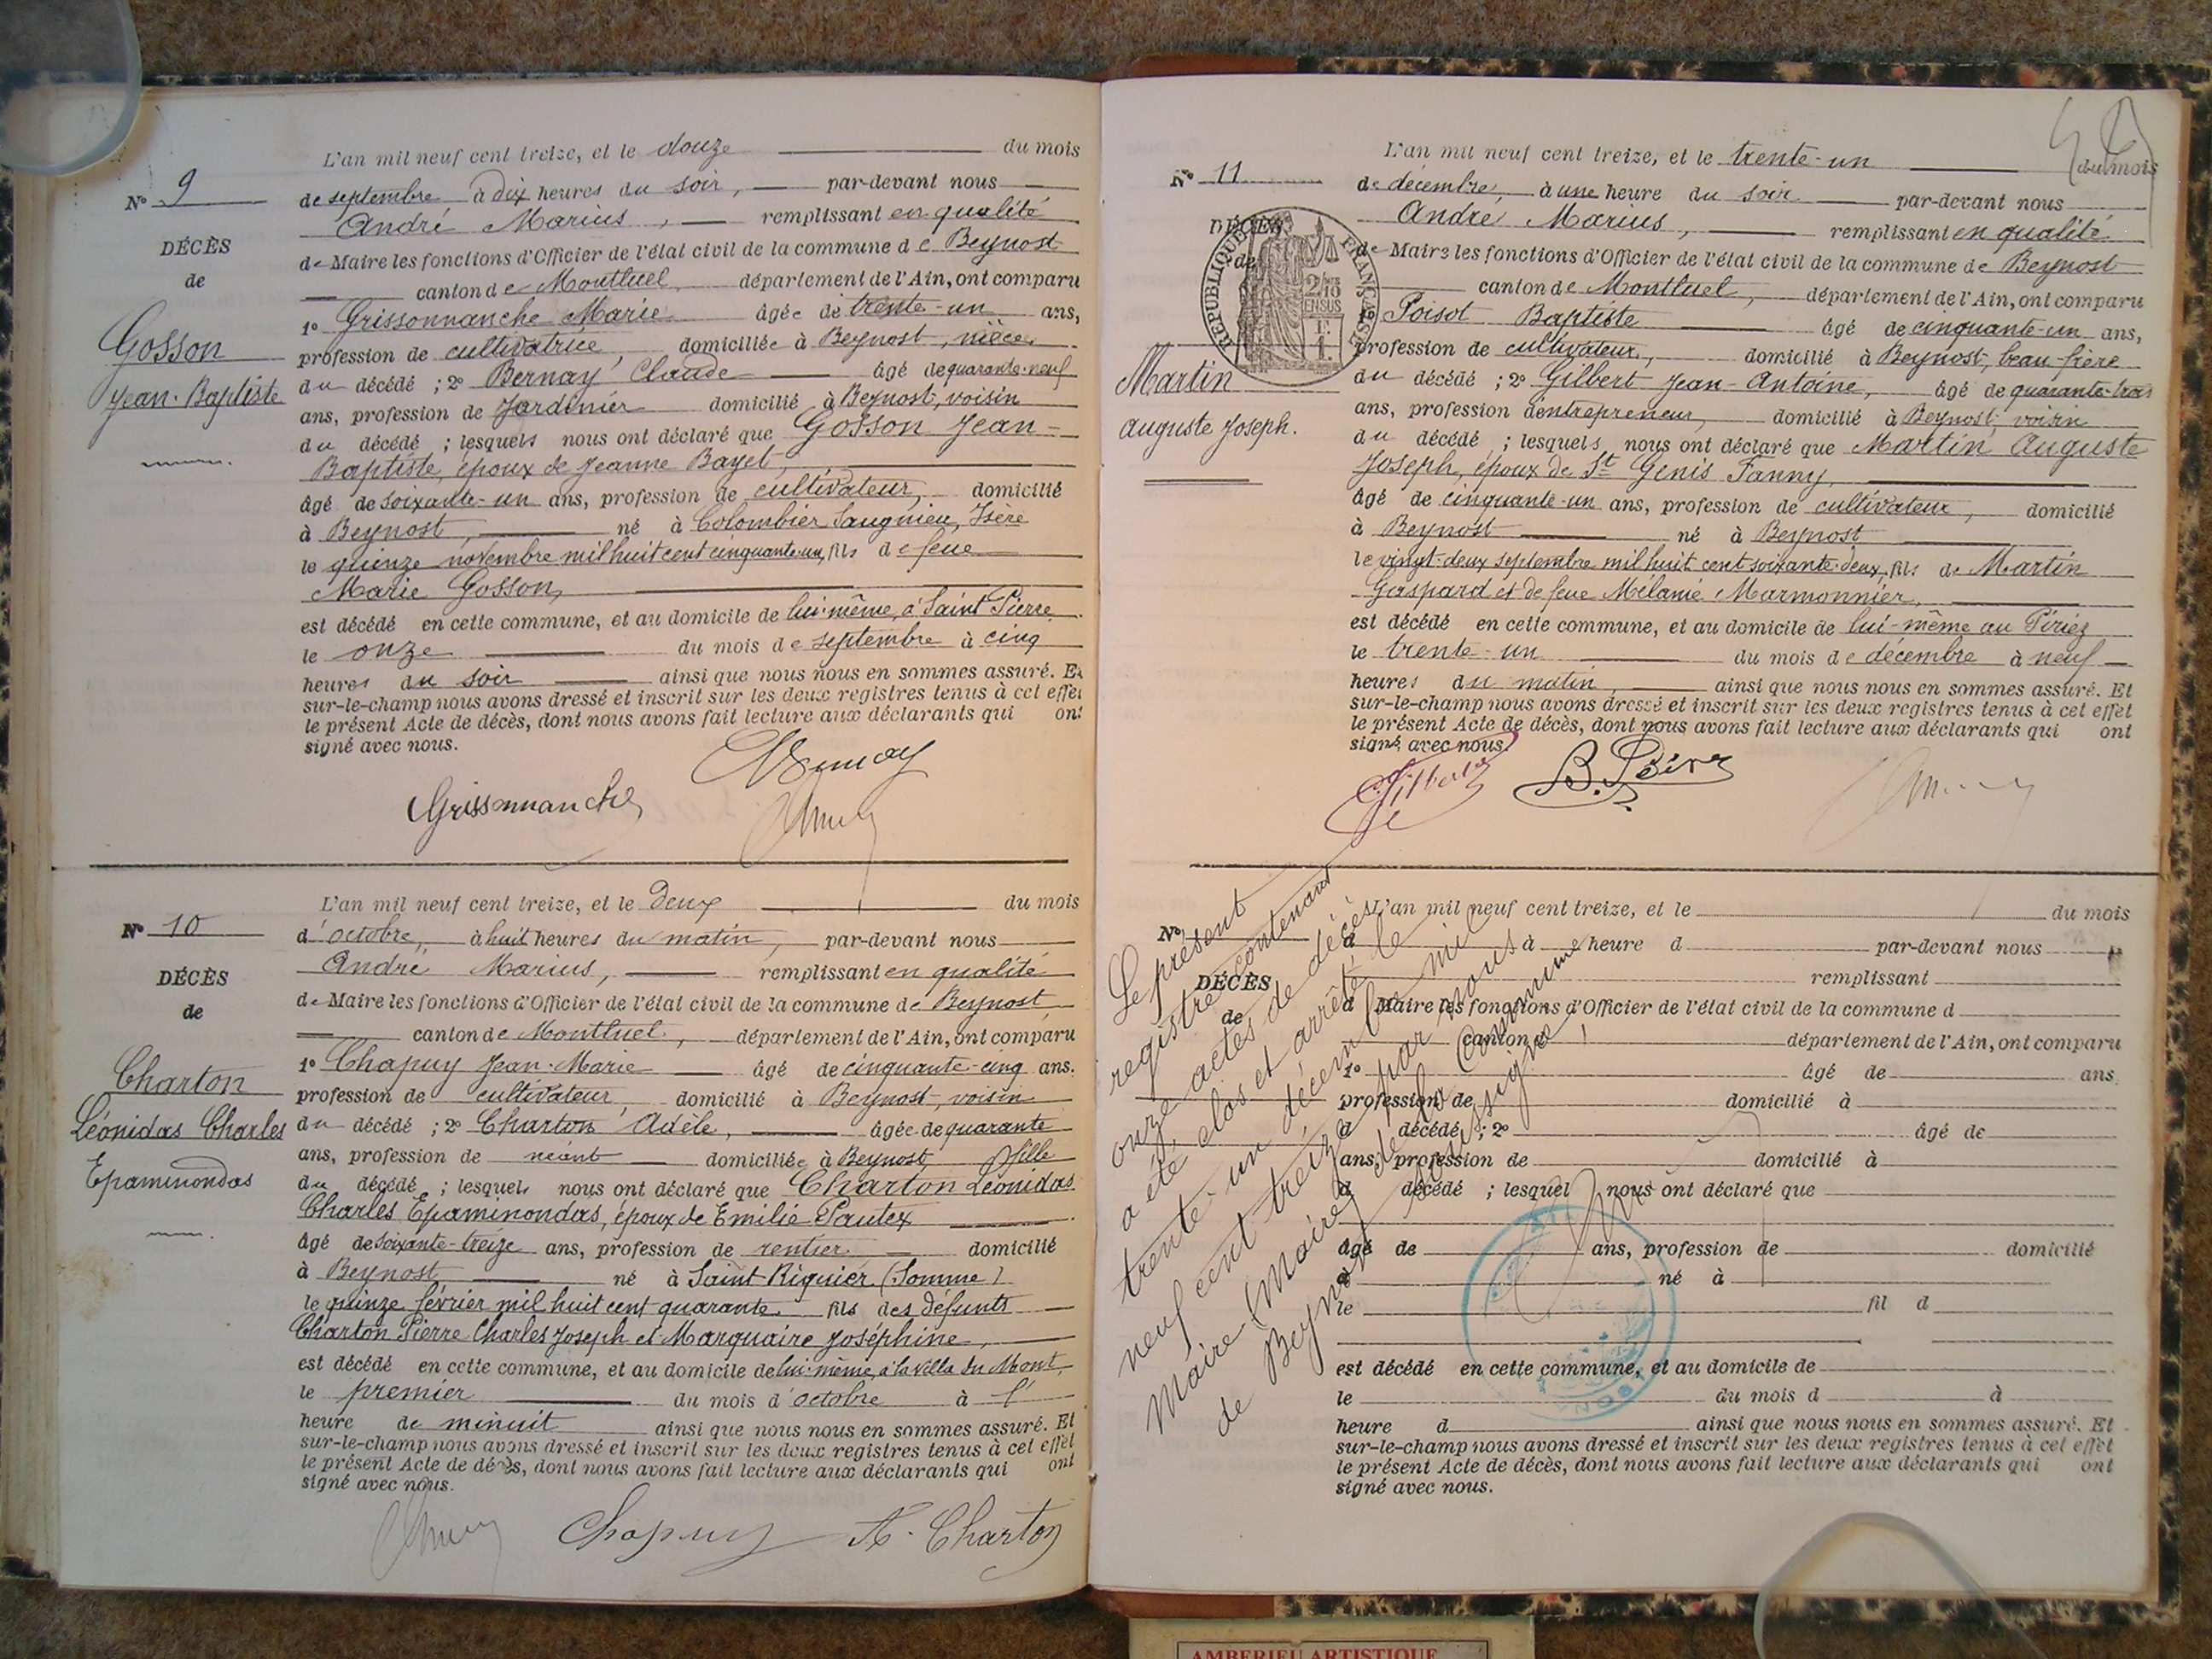 L'an mil neuf cent treize, et le douze du mois
N° 9
de septembre à dix heures du soir, par-devant nous
André Marius, remplissant en qualité
DÉCÈS
de Maire les fonctions d'Officier de l'état civil de la commune de Beynost
de
canton de Montluel, département de l'Ain, ont comparu
1° Grissonnanche Marie âgée de trente-un ans,
Gosson
profession de cultivatrice, domiciliée à Beynost, nièce
Jean-Baptiste
du décédé ; 2° Bernay Claude âgé de quarante-neuf
ans, profession de Jardinier domicilié à Beynost, voisin
du décédé ; lesquels nous ont déclaré que Gosson Jean-
Baptiste, époux de Jeanne Bayet,
âgé de soixante-un ans, profession de cultivateur, domicilié
à Beynost, né à Colombier Saugnieu, Isère
le quinze novembre mil huit cent cinquante-un, fils de feue
Marie Gosson,
est décédé en cette commune, et au domicile de lui-même, à Saint Pierre
le onze du mois de septembre à cinq
heures du soir ainsi que nous nous en sommes assuré. Et
sur-le-champ nous avons dressé et inscrit sur les deux registres tenus à cet effet
le présent Acte de décès, dont nous avons fait lecture aux déclarants qui ont
signé avec nous.
Grissonnanche
L'an mil neuf cent treize, et le Deux du mois
N° 10
d'octobre, à huit heures du matin, par-devant nous
André Marius, remplissant en qualité
DÉCÈS
de Maire les fonctions d'Officier de l'état civil de la commune de Beynost
de
canton de Montluel, département de l'Ain, ont comparu
1° Chapuy Jean-Marie âgé de cinquante-cinq ans.
Charton
profession de cultivateur, domicilié à Beynost, voisin
Léonidas Charles
du décédé ; 2° Charton Adèle, âgée de quarante
Epaminondas
ans, profession de néant domiciliée à Beynost, fille
du décédé ; lesquels nous ont déclaré que Charton Léonidas
Charles Epaminondas, époux de Emilie Pautex
âgé de soixante-treize ans, profession de rentier domicilié
à Beynost, né à Saint-Riquier (Somme)
le quinze février mil huit cent quarante fils des défunts
Charton Pierre Charles Joseph et Marquaire Joséphine,
est décédé en cette commune, et au domicile de lui-même, à la Villa du Mont,
le premier du mois d'octobre à l'
heure de minuit ainsi que nous nous en sommes assuré. Et
sur-le-champ nous avons dressé et inscrit sur les deux registres tenus à cet effet
le présent Acte de décès, dont nous avons fait lecture aux déclarants qui ont
signé avec nous.
Chapuy A. Charton
L'an mil neuf cent treize, et le trente-un du mois
N° 11
de décembre, à une heure du soir par-devant nous
André Marius, remplissant en qualité
DÉCÈS
de Maire les fonctions d'Officier de l'état civil de la commune de Beynost
de
RÉPUBLIQUE FRANÇAISE
2/10 EN SUS
canton de Montluel, département de l'Ain, ont comparu
Poisot Baptiste âgé de cinquante-un ans,
profession de cultivateur, domicilié à Beynost, beau-frère
Martin
du décédé ; 2° Gilbert Jean-Antoine, âgé de quarante-trois
Auguste Joseph.
ans, profession d'entrepreneur, domicilié à Beynost, voisin
du décédé ; lesquels nous ont déclaré que Martin Auguste
Joseph, époux de St Genis Fanny,
âgé de cinquante-un ans, profession de cultivateur, domicilié
à Beynost né à Beynost
le vingt-deux septembre mil huit cent soixante-deux, fils de Martin
Gaspard et de feue Mélanie Marmonnier,
est décédé en cette commune, et au domicile de lui-même au
le trente-un du mois de décembre à neuf
heures du matin, ainsi que nous nous en sommes assuré. Et
sur-le-champ nous avons dressé et inscrit sur les deux registres tenus à cet effet
le présent Acte de décès, dont nous avons fait lecture aux déclarants qui ont
signé avec nous.
L'an mil neuf cent treize, et le du mois
N°
d à heure d par-devant nous
remplissant
DÉCÈS
d Maire les fonctions d'Officier de l'état civil de la commune d
de
canton département de l'Ain, ont comparu
1° âgé de ans
profession de domicilié à
d décédé ; 2° âgé de
ans, profession de domicilié à
d décédé ; lesquel nous ont déclaré que
âgé de ans, profession de domicilié
à né à
le fil d
est décédé en cette commune, et au domicile de
le du mois d à
heure d ainsi que nous nous en sommes assuré. Et
sur-le-champ nous avons dressé et inscrit sur les deux registres tenus à cet effet
le présent Acte de décès, dont nous avons fait lecture aux déclarants qui ont
signé avec nous.
Le présent
registre contenant
onze actes de décès
a été clos et arrêté le
trente-un décembre mil
neuf cent treize par nous
Maire de la Commune
de Beynost soussigné
AMBERIEU ARTISTIQUE